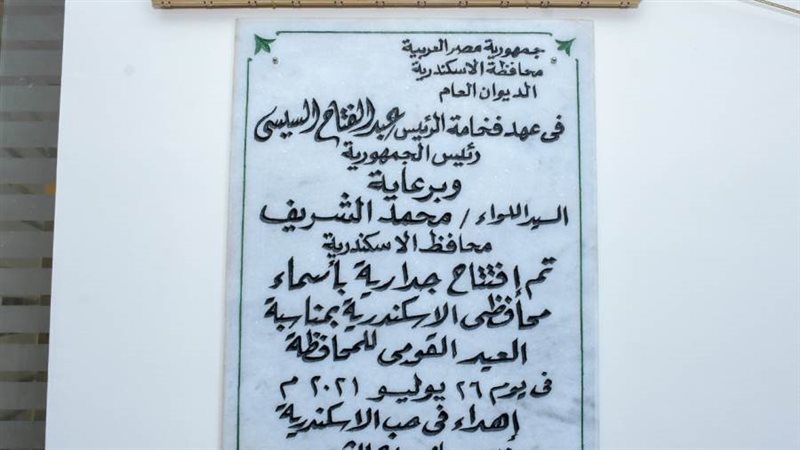 جمهورية مصر العربية
محافظة الاسكندرية
الديوان العام
فى عهد فخامة الرئيس / عبد الفتاح السيسى
رئيس الجمهورية
وبرعاية
السيد اللواء / محمد الشريف
محافظ الاسكندرية
تم إفتتاح جدارية بأسماء
محافظى الاسكندرية بمناسبة
العيد القومى للمحافظة
فى يوم ٢٦ يوليو ٢٠٢١ م
إهداء فى حب الاسكندرية